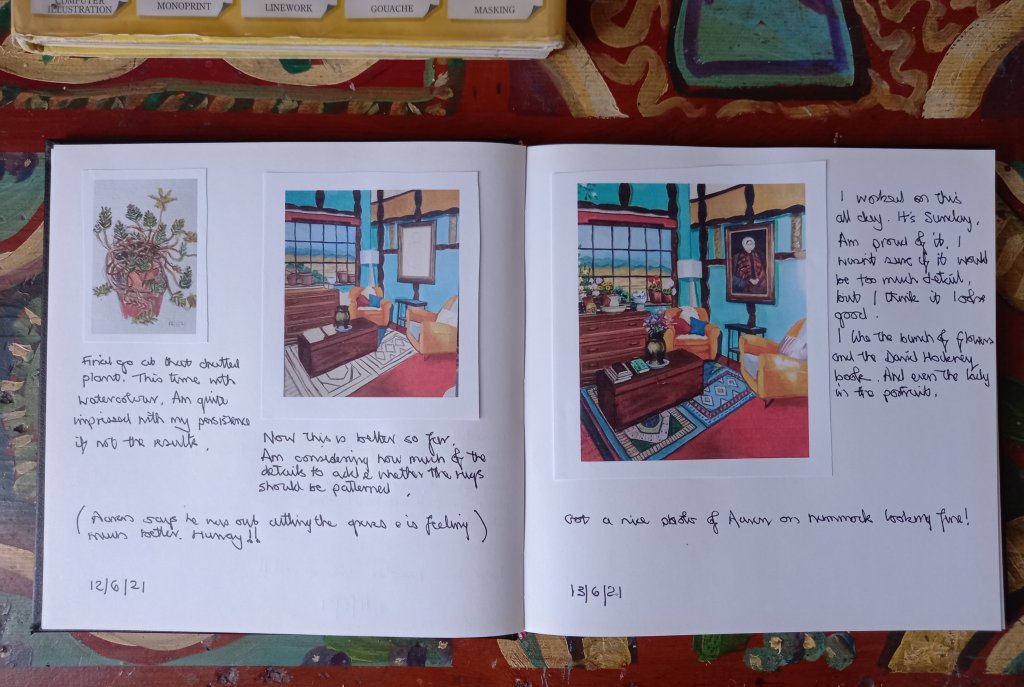 COMPUTER
ILLUSTRATION
MONOPRINT
LINEWORK
GOUACHE
MASKING
Final go at that dratted
plant. This time with
watercolour. Am quite
impressed with my persistence
if not the results.
Now this is better so far.
Am considering how much of the
details to add & whether the rugs
should be patterned.
(Aaron says he was out cutting the grass & is feeling
much better. Hurray!!)
12/6/21
I worked on this
all day. It's Sunday.
Am proud of it. I
wasn't sure if it would
be too much detail,
but I think it looks
good.
I like the bunch of flowers
and the David Hockney
books. And even the lady
in the portrait.
Got a nice photo of Aaron on hammock looking fine!
13/6/21